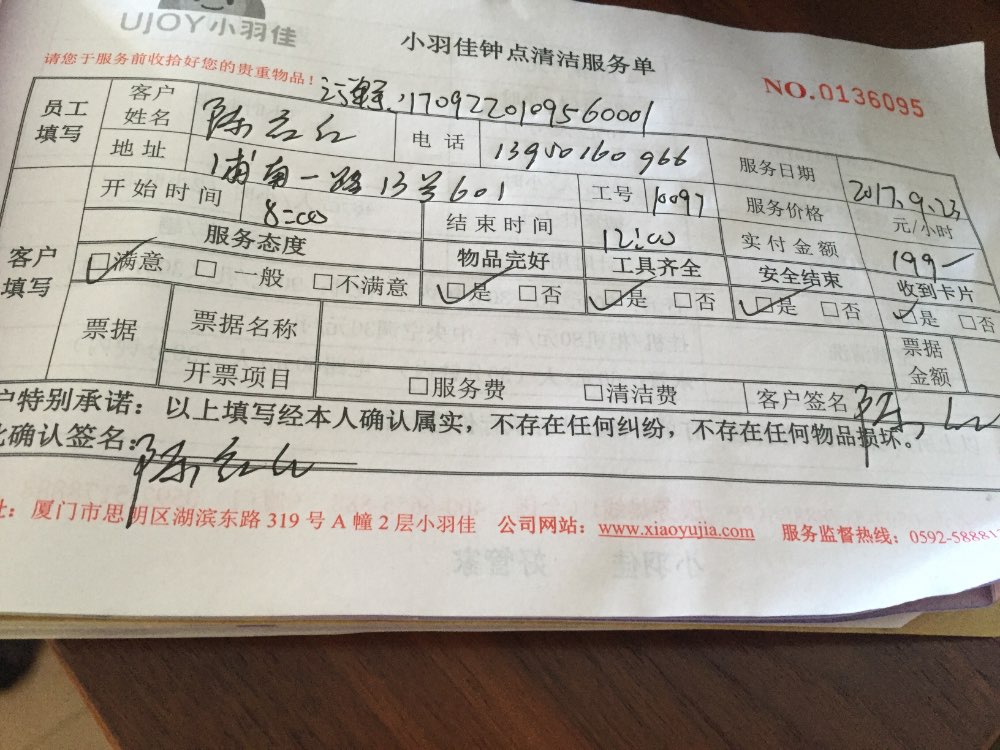 UJOY小羽佳
小羽佳钟点清洁服务单
请您于服务前收拾好您的贵重物品！
NO.0136095
1709220109560001
员工填写 客户姓名 陈 红 电话 13950160966 服务日期 2017.9.23
地址 浦南一路13号601 工号 10097 服务价格 元/小时
客户填写 开始时间 8:00 结束时间 12:00 实付金额 199
服务态度 物品完好 工具齐全 安全结束 收到卡片
☑满意 □一般 □不满意 ☑是 □否 ☑是 □否 ☑是 □否 ☑是 □否
票据 票据名称 票据金额
开票项目 □服务费 □清洁费 客户签名 陈
户特别承诺：以上填写经本人确认属实，不存在任何纠纷，不存在任何物品损坏。
此确认签名：陈 红
址：厦门市思明区湖滨东路319号A幢2层小羽佳 公司网站：www.xiaoyujia.com 服务监督热线：0592-58881